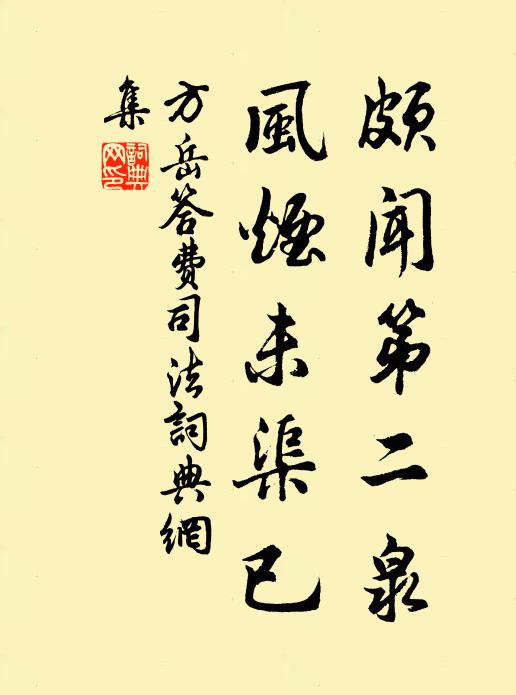 頗聞第二泉
風煙未渠已
方岳答費司法詞典網
集
詞典
网印